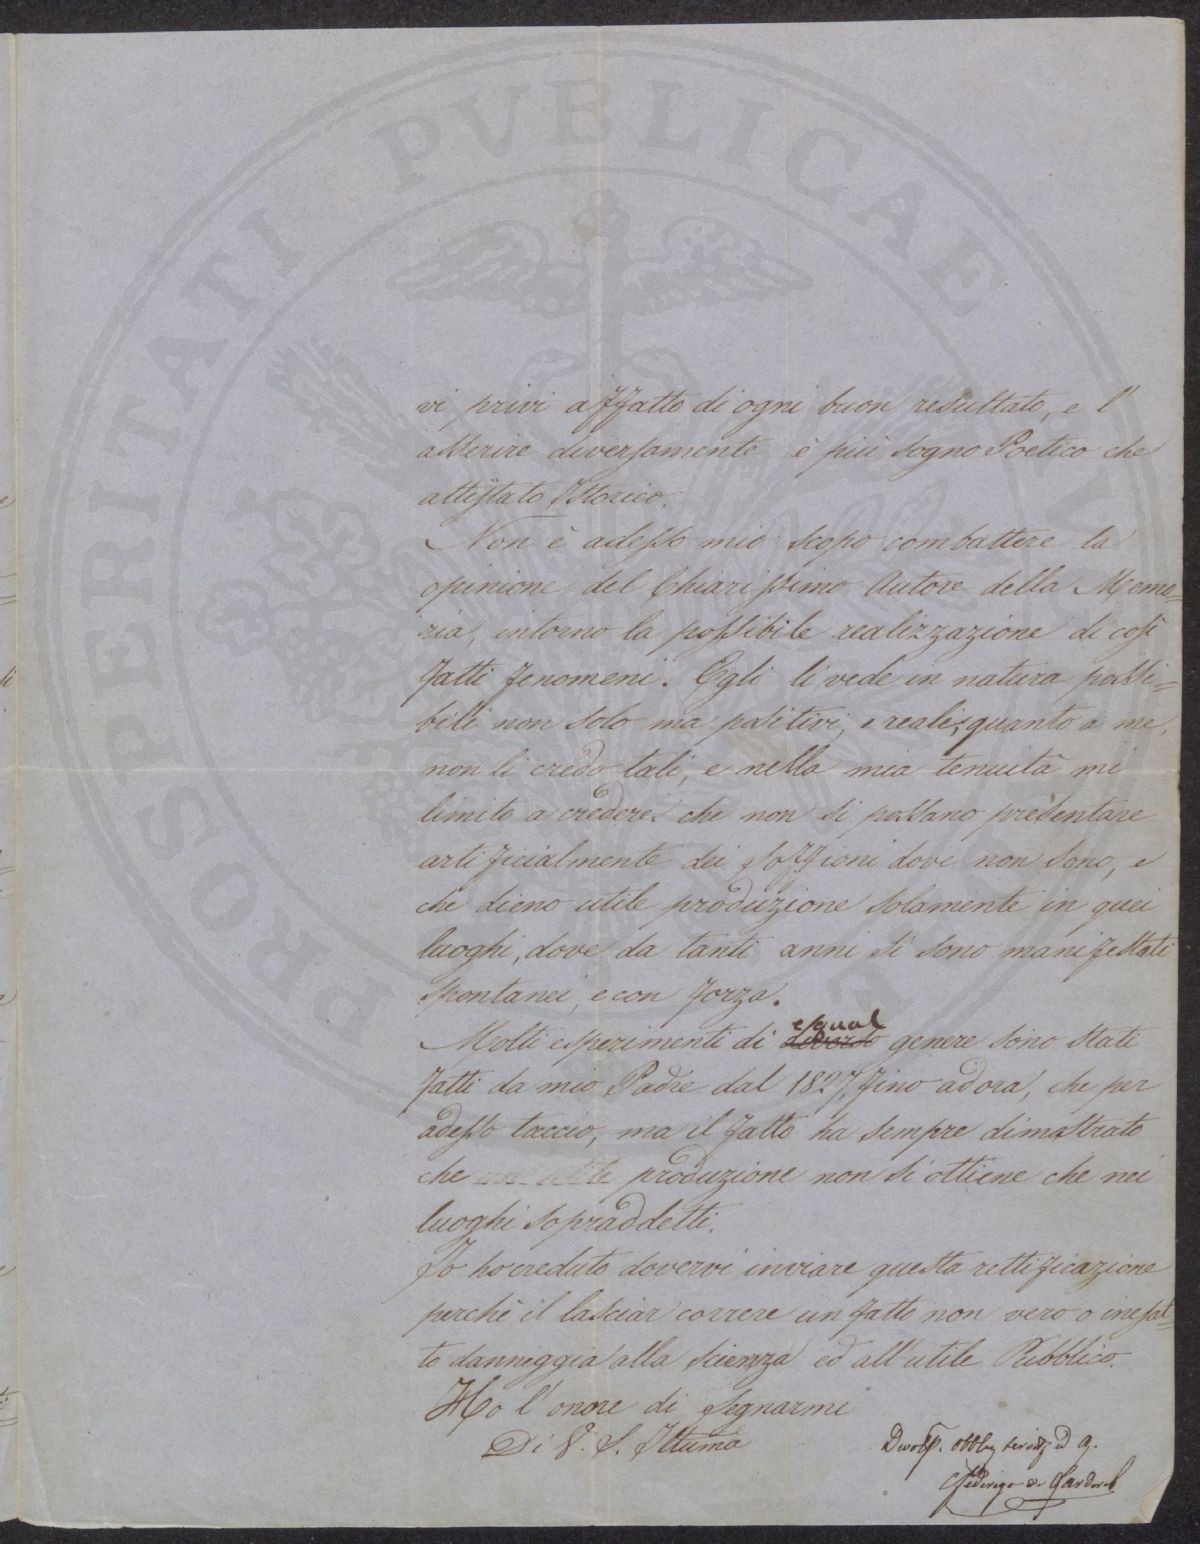 PROSPERITATI PUBLICAE
vi privi affatto di ogni buon resultato, e l'
asserire diversamente è più sogno Poetico che
attestato Istorico.
Non è adesso mio scopo combattere la
opinione del Chiarissimo Autore della Memo=
ria, intorno la possibile realizzazione di cosi
fatti fenomeni. Egli li vede in natura possi=
bili non solo ma positivi, e reali; quanto a me,
non li credo tali, e nella mia tenuità mi
limito a credere che non si possano presentare
artificialmente dei soffioni dove non sono, e
che dieno utile produzione solamente in quei
luoghi, dove da tanti anni si sono manifestati
spontanei, e con forza.
esqual
Molti esperimenti di diverso genere sono stati
fatti da mio Padre dal 1827, fino ad ora, che per
adesso taccio, ma il fatto ha sempre dimostrato
che un utile produzione non si ottiene che nei
luoghi sopraddetti.
Io ho creduto dovervi inviare questa rettificazione
perchè il lasciar correre un fatto non vero o inesat=
to danneggia alla scienza ed all'utile Pubblico.
Ho l'onore di segnarmi
Di V. S. Illuma
Devotss. obblig servit ed a.
Federigo de Larderel